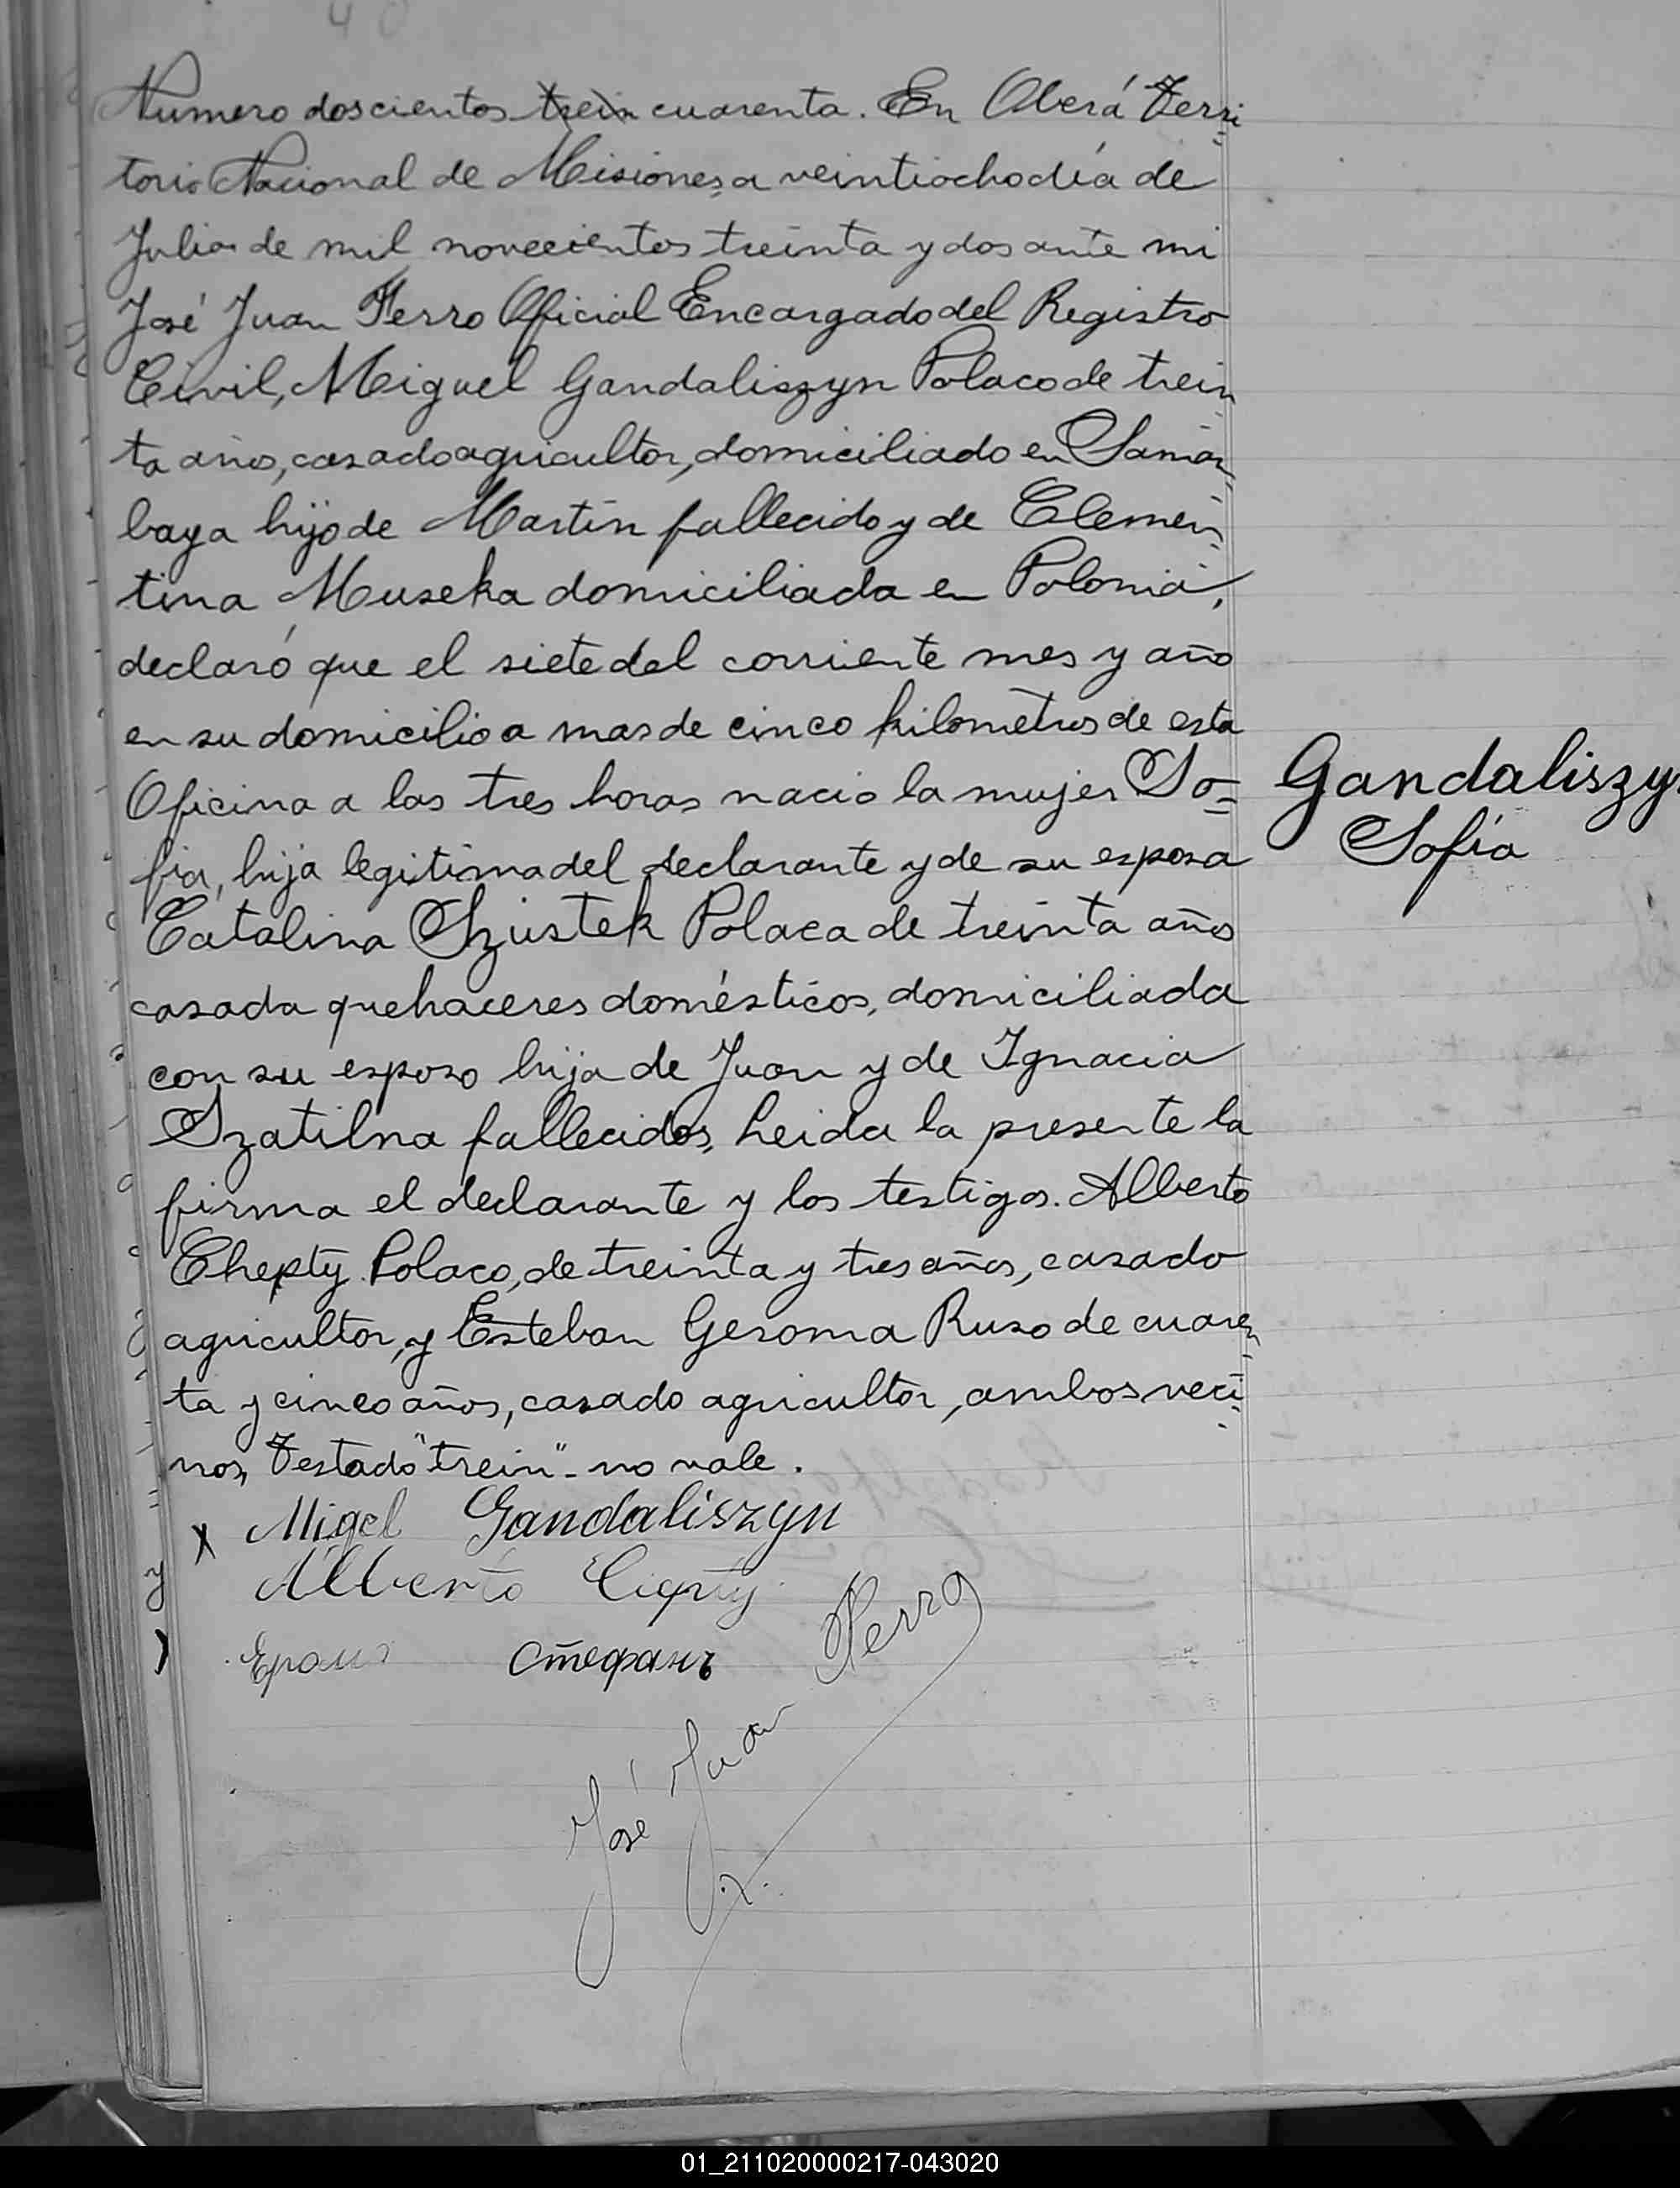 Numero doscientos trein cuarenta. En Oberá Terri
torio Nacional de Misiones, a veintiocho día de
Julio de mil novecientos treinta y dos ante mi
José Juan Ferro Oficial Encargado del Registro
Civil, Miguel Gandaliszyn Polaco de trein
ta años, casado agricultor, domiciliado en Samam
baya hijo de Martín fallecido y de Clemen
tina Museka domiciliada en Polonia,
declaró que el siete del corriente mes y año
en su domicilio a mas de cinco kilometros de esta
Oficina a las tres horas nacio la mujer So=
Gandaliszy
fia, hija legitima del declarante y de su esposa
Sofía
Catalina Szustek Polaca de treinta años
casada quehaceres domésticos, domiciliada
con su esposo hija de Juan y de Ignacia
Szatilna fallecidos, Leida la presente la
firma el declarante y los testigos. Alberto
Chepty Polaco, de treinta y tres años, casado
agricultor, y Esteban Geroma Ruso de cuaren
ta y cinco años, casado agricultor, ambos veci=
nos, Testado "trein" - no vale.
x Migel Gandaliszyn
Alberto
Стефанъ
José Juan Ferro
01_211020000217-043020